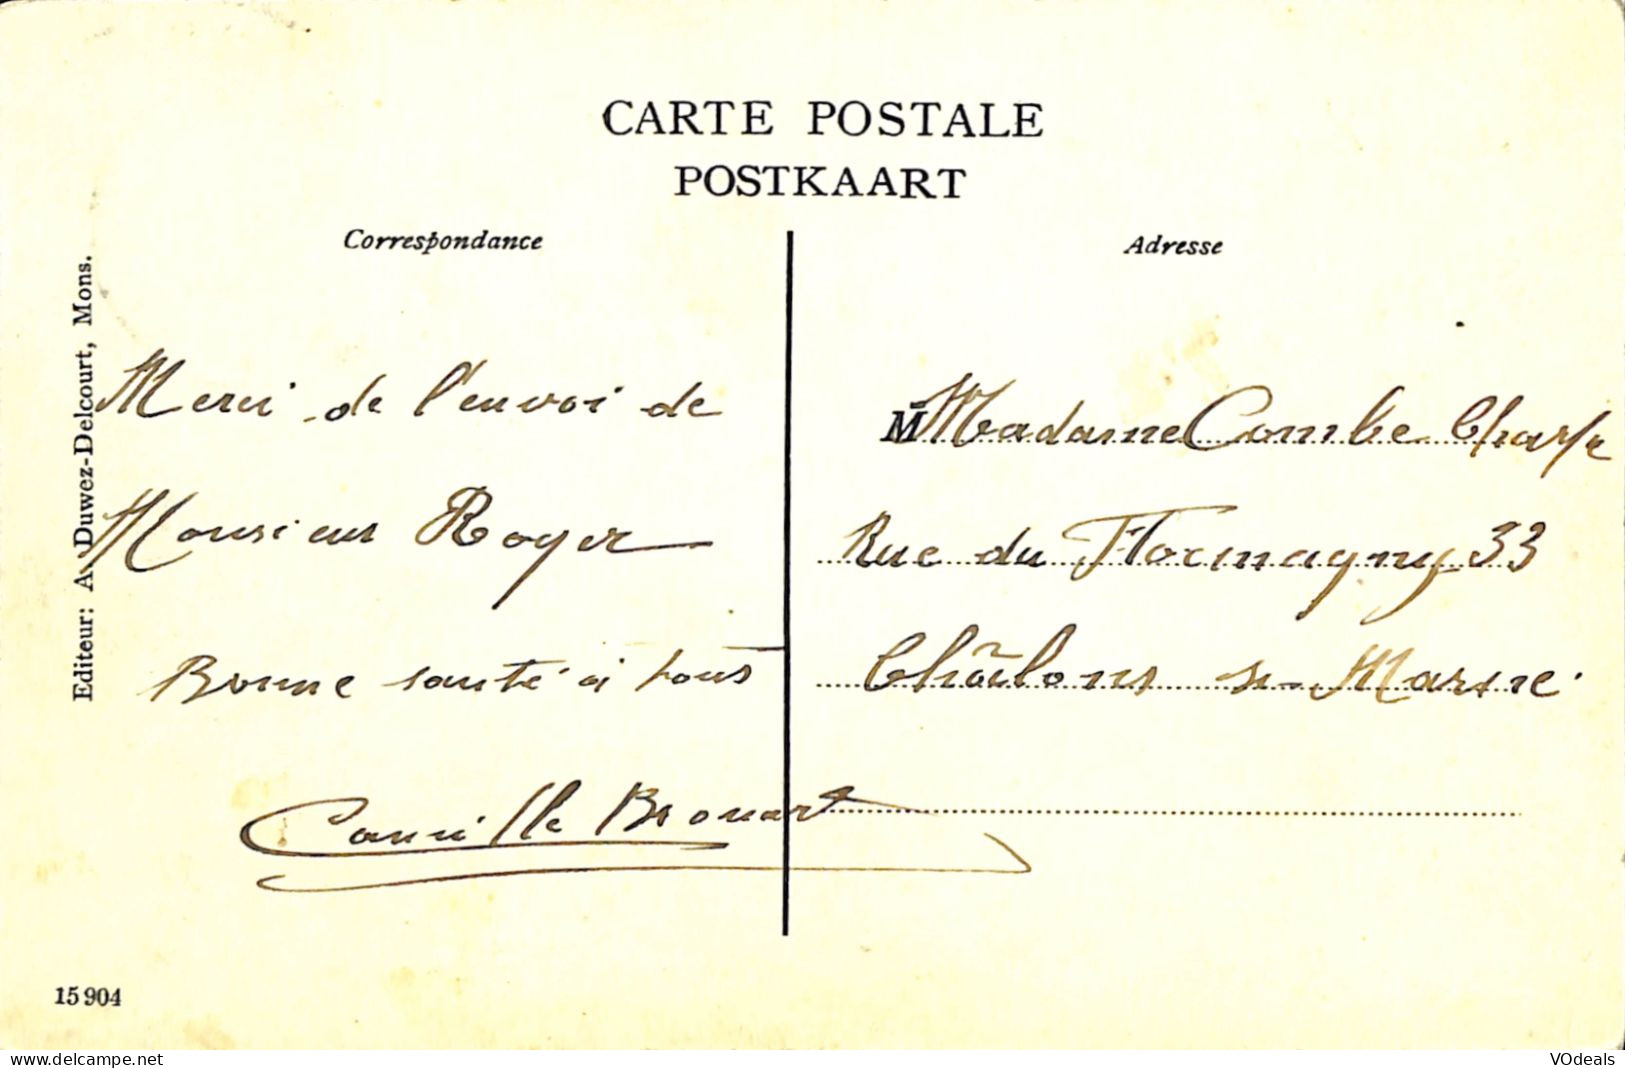 CARTE POSTALE
POSTKAART
Correspondance
Adresse
Editeur: A. Duwez-Delcourt, Mons.
Merci de l'envoi de
Monsieur Royer
Bonne santé à tous
Camille Brouart
M Madame Combe
Rue du Flocmagny 33
Châlons s- Marne
15904
www.delcampe.net
VOdeals